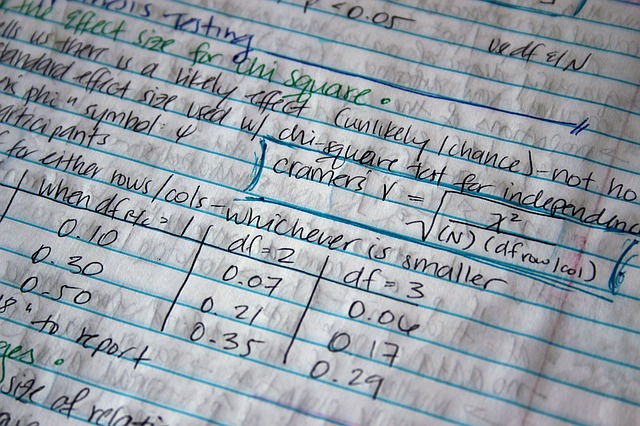 p < 0.05
Testing
effect size for chi square.
use df & N
us there is a likely effect (unlikely / chance) - not no
standard effect size used w/ chi-square test for independence
phi" symbol: ψ
participants
Cramer's V = √ χ² / (N) (df row/col)
for either rows/cols - whichever is smaller
when df r/c = 1 df = 2 df = 3
0.10 0.07 0.06
0.30 0.21 0.17
0.50 0.35 0.29
" to report
size of